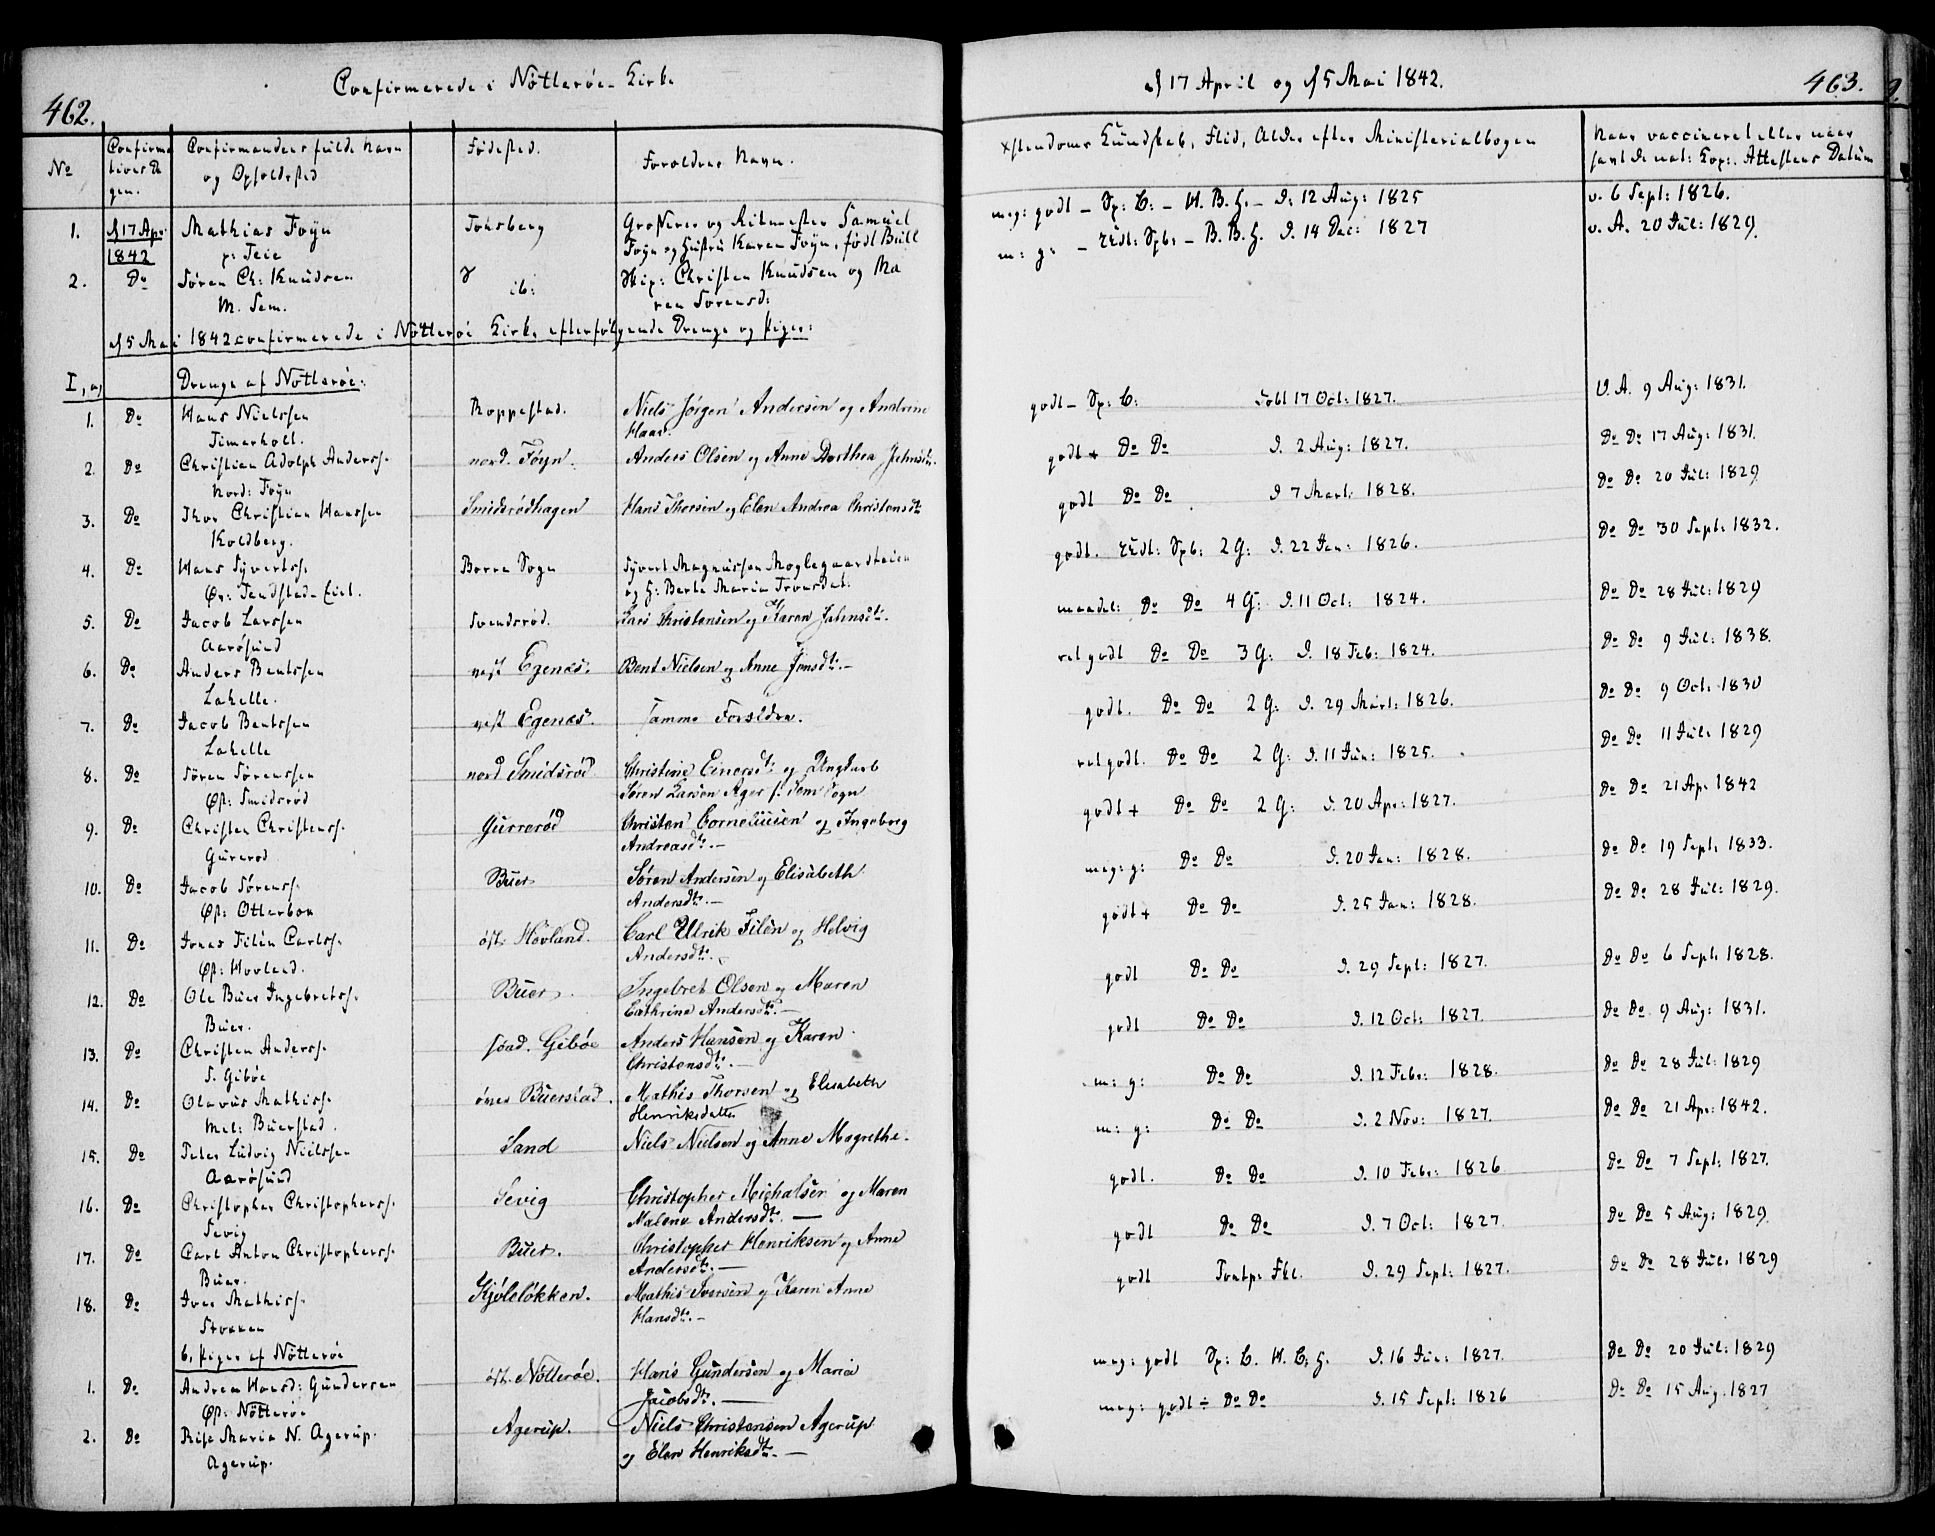 Confirmerede i Nøtterøe Kirke
462.
No
Confirmationens Dagen.
Confirmandens fulde Navn og Opholdsted
Fødested.
Foreldres Navn.
1. d 17 Apr: 1842 Mathias Foÿn Tønsberg Grosserer og Ritmester Samuel
p: Teie Foyn og Hustru Karen Foÿn, født Bull
2. Do Søren Ch: Knudsen ib: Skip: Christen Knudsen og Ma
M. Sem. ren Sørensd:
d 5 Mai 1842 confirmerede i Nøtterøe Kirke efterfølgende Drenge og Piger:
I, a, Drenge af Nøtterøe:
1. Do Hans Nielssen Roppestad. Niels Jørgen Andersen og Andrine
Timerholt. Haas.
2. Do Christian Adolph Anderss. nord. Føyn. Anders Olsen og Anne Dorthea Jahnsdt.
Nord: Foÿn
3. Do Thor Christian Hanssen Smidsrødhagen Hans Thorsen og Elen Andrea Christensdt:
Koldberg.
4. Do Hans Syvertss. Borre Sogn Syvert Magnussen Moglegaardteien
Øv: Tandstad-Eiet. og H: Berte Maria Tronsdat:
5. Do Jacob Larssen Svendsrød. Lars Christensen og Karen Jahnsdt:
Aarøsund
6. Do Anders Bentssen vest Egenæs: Bent Nielsen og Anne Jonsdt: –
Lahelle.
7. Do Jacob Bentssen vest Egenæs. Samme Forældre.
Lahelle
8. Do Søren Sørenssen nord Smidsrød. Christine Einersdt: og Ungkarl
Øst: Smidsrød Søren Larsen Ager p. Sem Sogn
9. Do Christen Christenss. Gurrerød Christen Corneliusen og Ingeborg
Gurerød Andreasdt: –
10. Do Jacob Sørenss. Buer Søren Andersen og Elisabeth
Øst: Otterbek Andersdt: –
11. Do Jonas Filén Carlss. øst: Hovland. Carl Ulrik Filén og Helvig
Øst: Hovland. Andersdt: –
12. Do Ole Buer Ingebretss. Buer. Ingebret Olsen og Maren
Buer. Cathrine Andersdt: –
13. Do Christen Anderss. sønd. Gibøe Anders Hansen og Karen
S. Gibøe Christensdt: –
14. Do Olavus Mathiss. øvre Buerstad. Mathis Thorsen og Elisabeth
Mel: Buerstad. Henriksdatter
15. Do Peter Ludvig Nielssen Sand Niels Nielsen og Anne Magrethe.
Aarøsund
16. Do Christopher Christopherss. Sevig Christopher Michalsen og Maren
Sevig Malene Andersdt: –
17. Do Carl Anton Christopherss. Buer. Christopher Henriksen og Anne
Buer. Andersdt: –
18. Do Iver Mathiss. Kjøleløkken. Mathis Iversen og Karen Anne
Stokken Hansdt: –
b, Piger af Nøtterøe
1. Do Andrea Hansd: Gundersen øst. Nøtterøe. Hans Gundersen og Maria
Øst: Nøtterøe Jacobsdt. –
2. Do Rise Maria N. Agerup. Agerup. Niels Christensen Agerup
Agerup. og Elen Henriksdt. –
d 17 April og d 5 Mai 1842.
463.
Xstendoms Kundskab, Flid, Alder efter Ministerialbogen
Naar vaccineret eller naar havt de nat: Kop: Attestens Datum
meg: godt – Sp: C: – H. B. H. – D: 12 Aug: 1825 v. 6 Sept: 1826.
m: g: – Udt: Spb: – B. B. H. D. 14 Dec: 1827 v. A. 20 Jul: 1829.
godt – Sp: C: født 17 Oct: 1827. V. A. 9 Aug: 1831.
godt + Do Do D. 2 Aug: 1827. Do Do 17 Aug: 1831.
godt Do Do D 7 Mart: 1828. Do Do 20 Jul: 1829
godt. Udt: Spb: 2 G: D. 22 Jan: 1826. Do Do 30 Sept: 1832.
maadel: Do Do 4 G: D. 11 Oct: 1824. Do Do 28 Jul: 1829
vel godt Do Do 3 G: D. 18 Feb: 1824. Do Do 9 Jul: 1838.
godt. Do Do 2 G: D. 29 Mart: 1826. Do Do 9 Oct: 1830
vel godt. Do Do 2 G: D. 11 Jun: 1825. Do Do 11 Jul: 1829
godt + Do Do 2 G: D. 20 Apr: 1827. Do Do 21 Ap: 1842
meg: g: Do Do D. 20 Jan: 1828. Do Do 19 Sept: 1833.
godt + Do Do D. 25 Jan: 1828. Do Do 28 Jul: 1829.
godt Do Do D. 29 Sept: 1827. Do Do 6 Sept: 1828.
godt Do Do D. 12 Oct: 1827. Do Do 9 Aug: 1831.
m: g: Do Do D. 12 Febr: 1828. Do Do 28 Jul: 1829
m: g: Do Do D. 2 Nov: 1827. Do Do 21 Apr: 1842.
godt. Do Do D. 10 Febr: 1826 Do Do 7 Sept: 1827.
godt Do Do D. 7 Oct: 1827. Do Do 5 Aug: 1829.
godt D. 29 Sept: 1827. Do Do 28 Jul: 1829
meg: godt Sp: C. H. C. H. D. 16 Jun: 1827. Do Do 20 Jul: 1829
meg: godt ÷ Do Do D. 15 Sept: 1826 Do Do 15 Aug. 1827